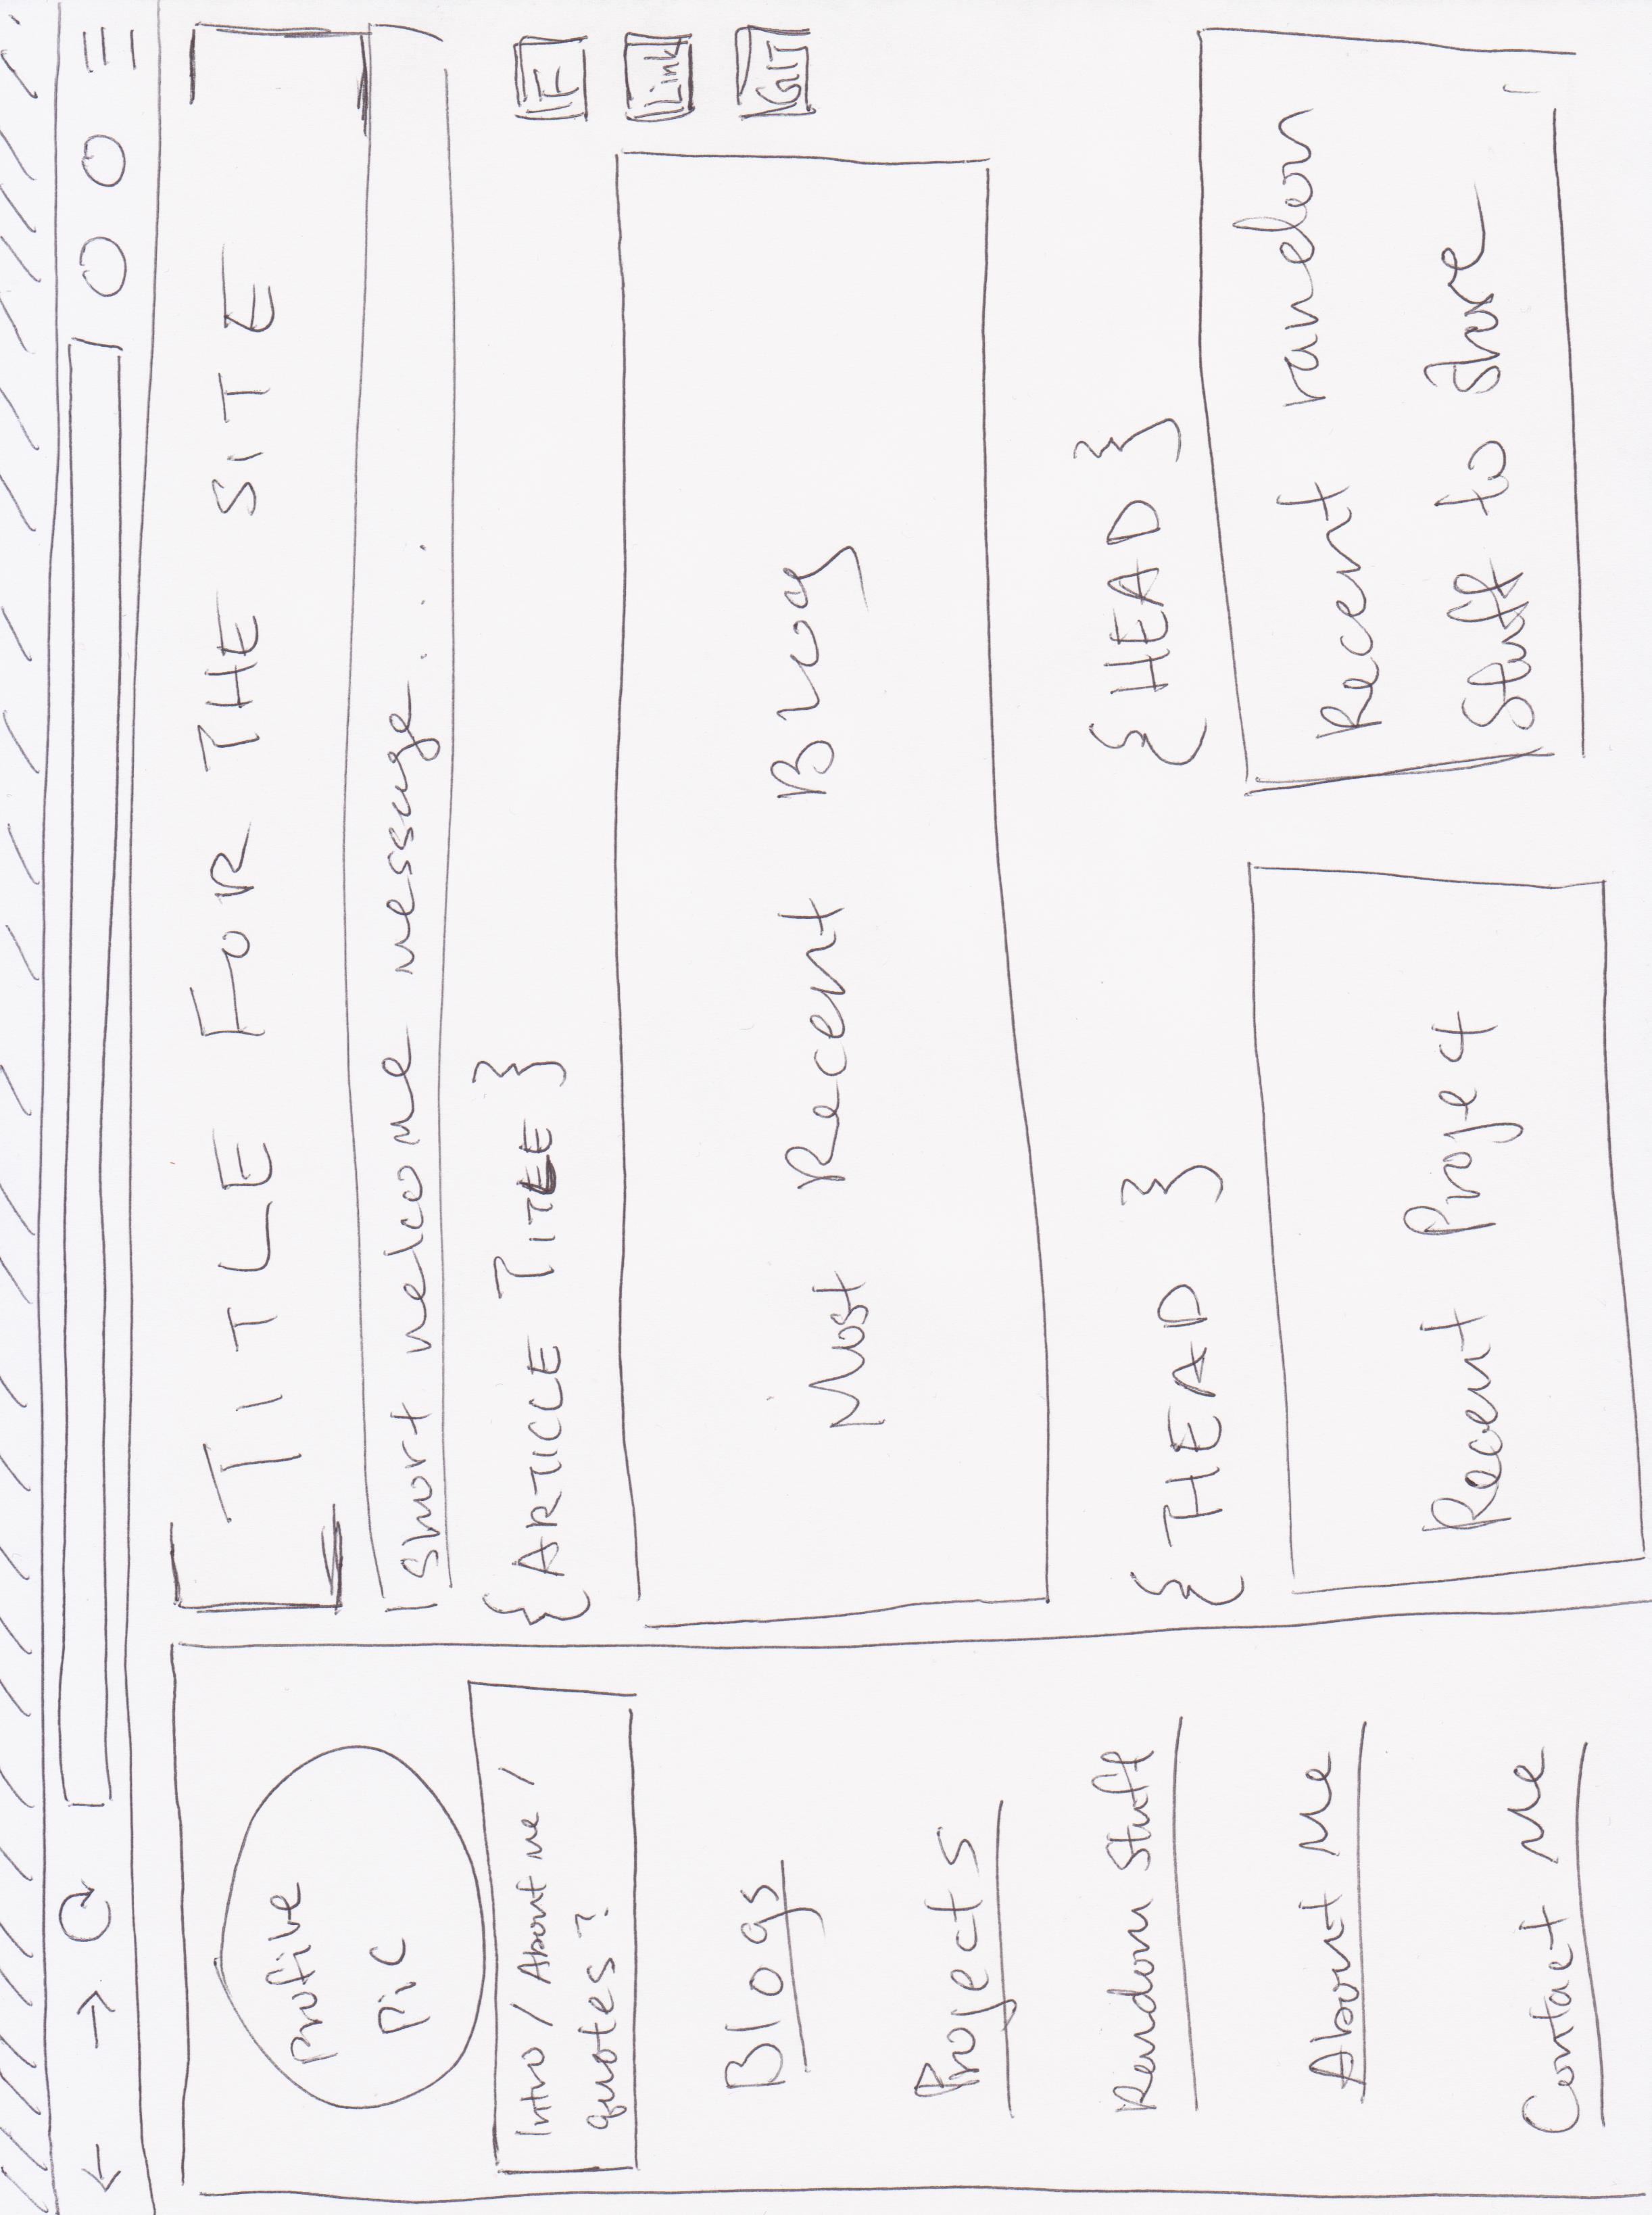 Profile
Pic
Intro / About me /
quotes?
Blogs
Projects
Random Stuff
About Me
Contact Me
TITLE FOR THE SITE
short welcome message...
{ARTICLE TITLE}
F
Link
GIT
Most Recent Blog
{HEAD}
{HEAD}
Recent Project
Recent random
Stuff to share